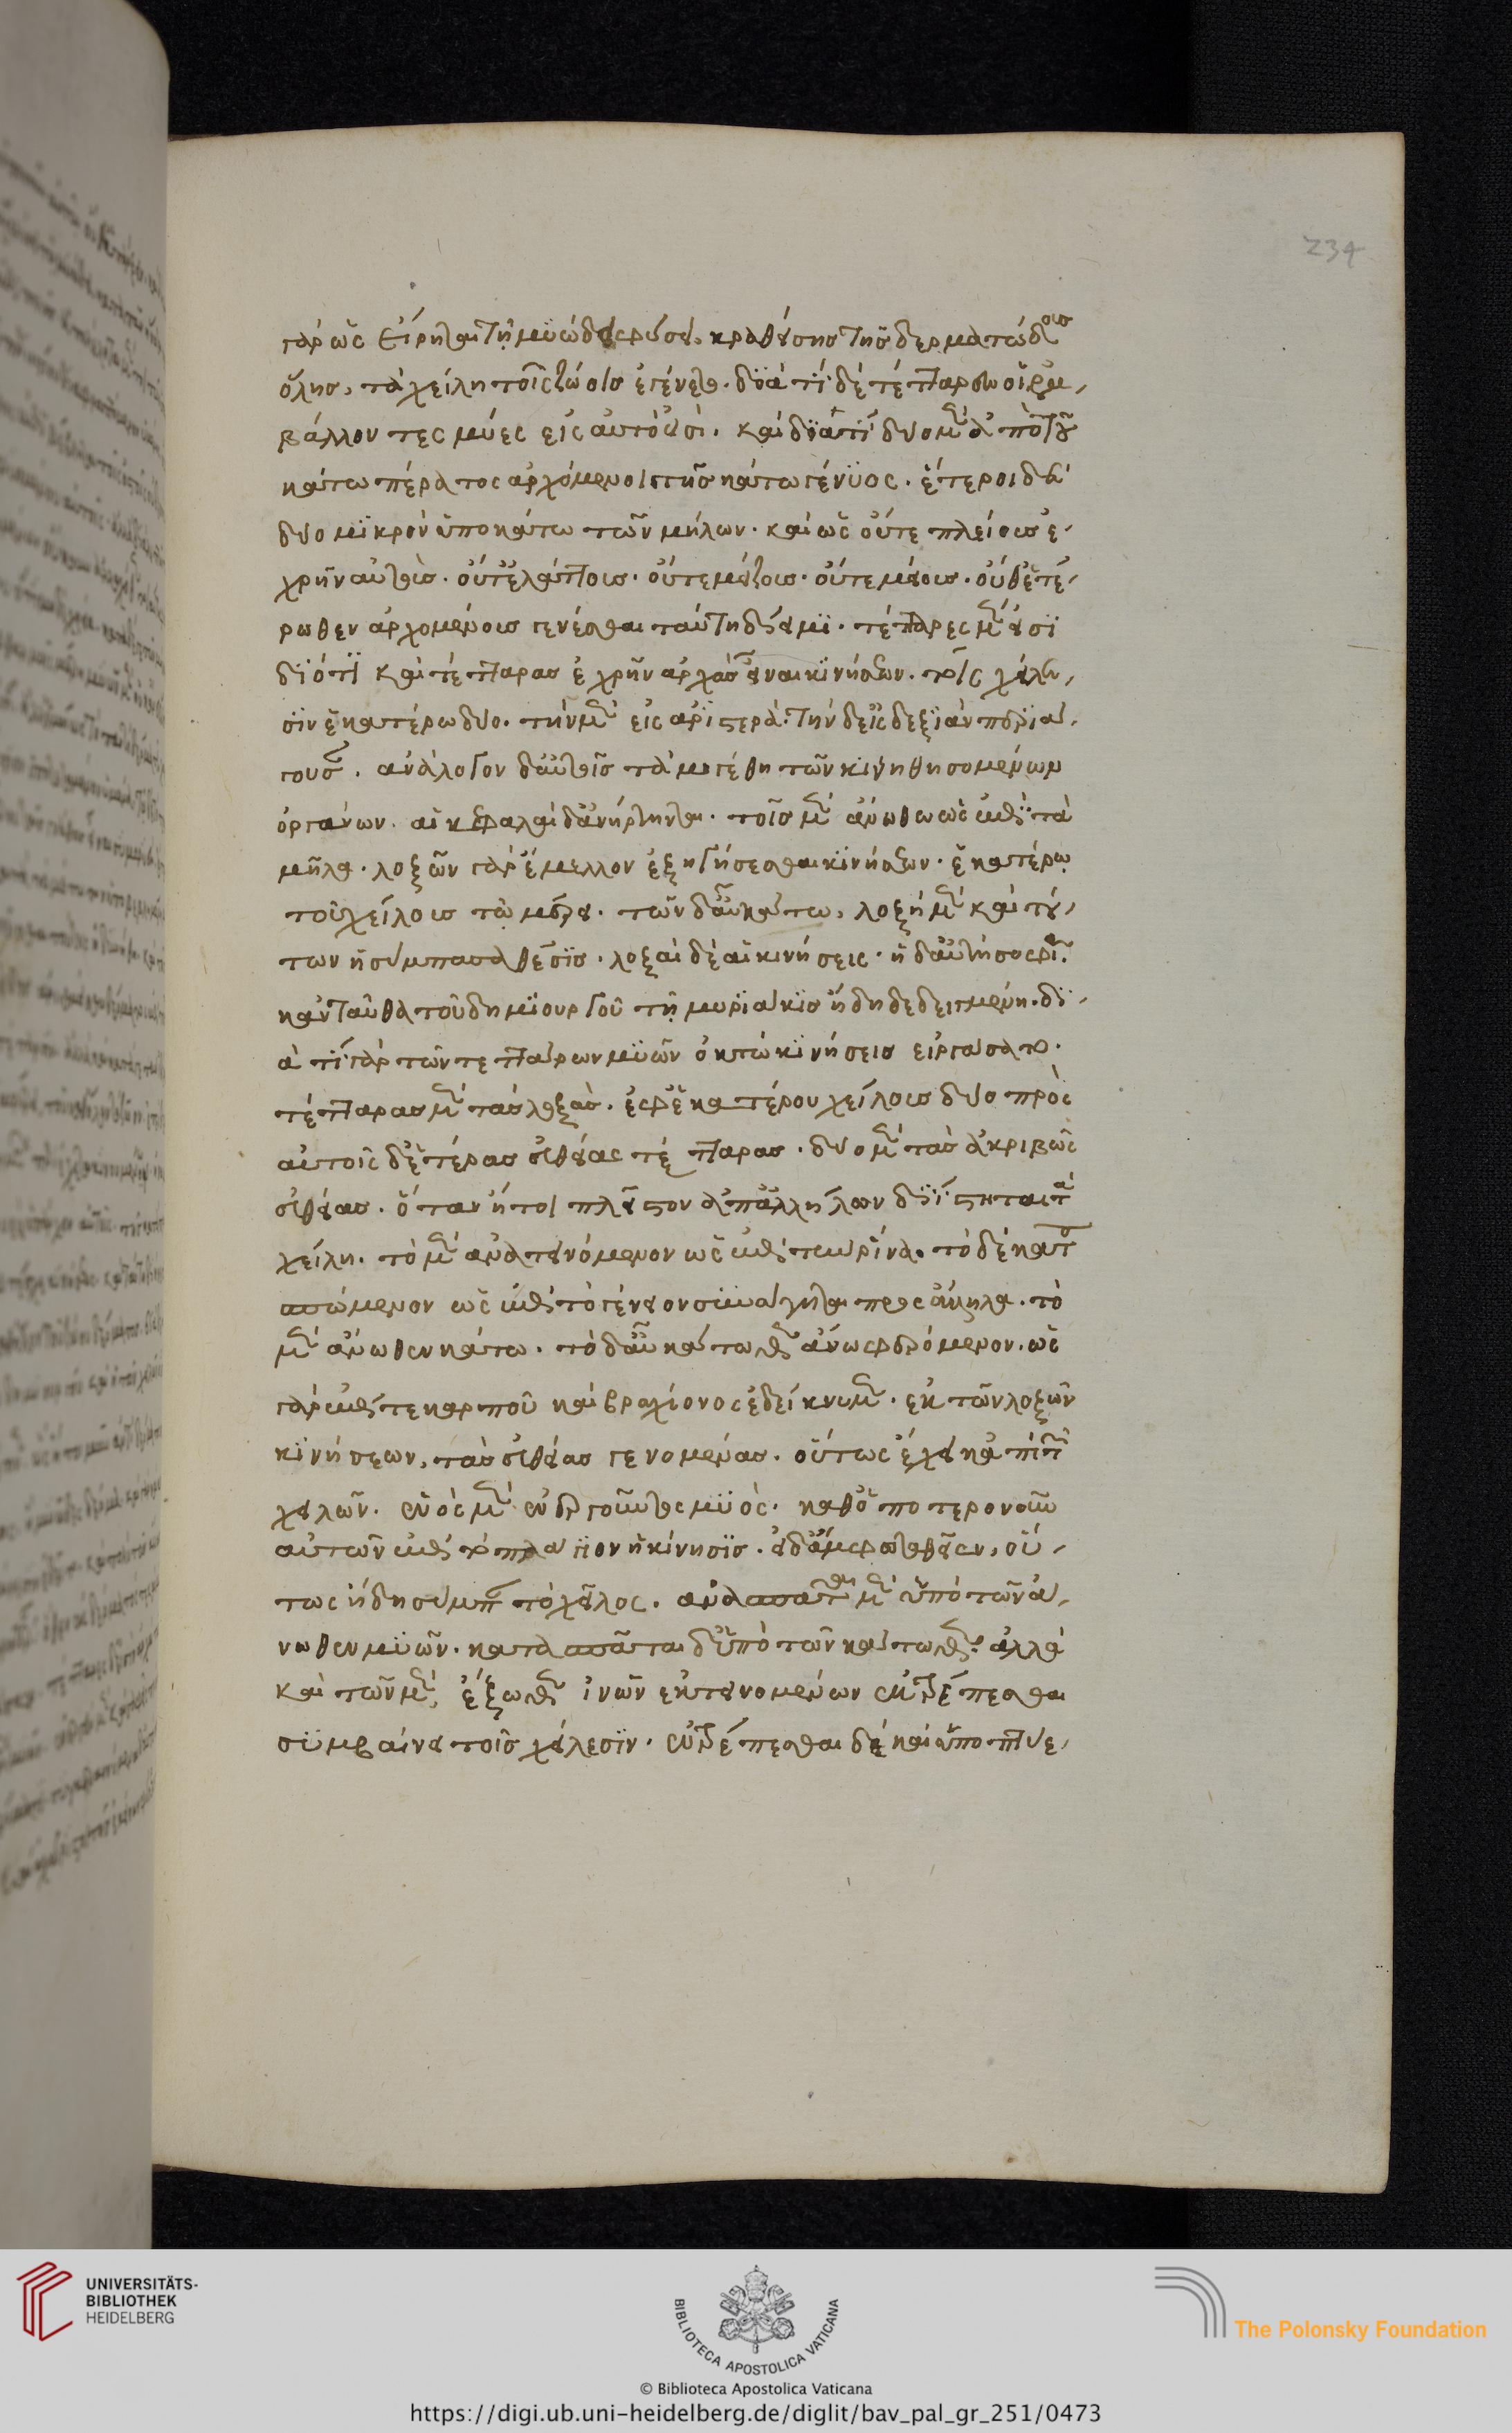 234
γὰρ ὡς εἴρηται τῇ μυώδει φύσει, κραθείσης τῆς δερματώδους
ὅλης, τὰ χείλη τοῖς ζώοις ἐγένετο. διὰ τί δὲ τέτταρες οἱ ἐμ-
βάλλοντες μύες εἰς αὐτό εἰσι. καὶ διατί δύο μὲν ἀπὸ τοῦ
κάτω πέρατος ἀρχόμενοι τῆς κάτω γένυος. ἕτεροι δὲ
δύο μικρὸν ὑποκάτω τῶν μήλων. καὶ ὡς οὔτε πλείους ἐ-
χρῆν αὐτοὺς. οὔτ' ἐλάττους. οὔτε μείζους. οὔτε μείους. οὔθ' ἑτέ-
ρωθεν ἀρχομένους γενέσθαι ταύτῃ δίειμι. τέτταρες μὲν εἰσὶ
διότι καὶ τέτταρας ἐχρῆν ἀρχὰς εἶναι κινήσεων. τοῖς χείλε-
σιν ἑκατέρω δύο. τὴν μὲν εἰς ἀριστερὰ. τὴν δ' εἰς δεξιὰν περιά-
γουσαν. ἀνάλογον δ' αὐτοῖς τὰ μεγέθη τῶν κινηθησομένων
ὀργάνων. αἱ κεφαλαὶ δ' ἀνήρτηνται. τοῖς μὲν ἄνωθεν ὡς ἐπὶ τὰ
μῆλα. λοξῶν γὰρ ἔμελλον ἐξηγήσεσθαι κινήσεων. ἑκατέρῳ
τοῦ χείλους τῷ μέρει. τῶν δ' αὖ κάτω, λοξὴ μὲν καὶ τού-
των ἡ σύμπασα θέσις. λοξαὶ δὲ αἱ κινήσεις. ἡ δ' αὐτὴ σοφία
κἀνταῦθα τοῦ δημιουργοῦ τῇ μυριάκις ἤδη δεδειγμένῃ. δι-
ὰ τί γὰρ τῶν τεττάρων μυῶν ὀκτὼ κινήσεις εἰργάσατο.
τέτταρας μὲν τὰς λοξὰς. ἐφ' ἑκατέρου χείλους δύο πρὸς
αὐτοῖς δ' ἑτέρας εὐθείας τέτταρας. δύο μὲν τὰς ἀκριβῶς
εὐθείας. ὅταν ἤτοι πλεῖστον ἀπ' ἀλλήλων διΐστηται τὰ
χείλη. τὸ μὲν ἀνατεινόμενον ὡς ἐπὶ τὴν ῥῖνα. τὸ δὲ κατα
σπώμενον ὡς ἐπὶ τὸ γένειον συνάγηται προς ἄλληλα. τὸ
μὲν ἄνωθεν κάτω. τὸ δ' αὖ κάτωθεν ἄνω φερόμενον. ὡς
γὰρ ἐπί τε καρποῦ καὶ βραχίονος ἐδείκνυμεν. ἐκ τῶν λοξῶν
κινήσεων, τὰς εὐθείας γενομένας. οὕτως ἔχει κἀπὶ τῶν
χειλῶν. ἑνὸς μὲν ἐνεργοῦντος μυὸς. καθ' ὁπότερον οὖν
αὐτῶν ἐπὶ τὸ πλάγιον ἡ κίνησις. εἰ δ' ἄμφω ταθεῖεν, οὕ-
τως ἤδη σύμπαν τὸ χεῖλος. ἀνασπᾶται μὲν ὑπὸ τῶν ἄ-
νωθεν μυῶν. κατασπᾶται δ' ὑπὸ τῶν κάτωθεν. ἀλλὰ
καὶ τῶν μὲν ἔξωθεν ἰνῶν ἐκτεινομένων ἐκτρέπεσθαι
συμβαίνει τοῖς χείλεσιν. ἐντρέπεσθαι δὲ καὶ ὑποπτύε-
UNIVERSITÄTS-
BIBLIOTHEK
HEIDELBERG
BIBLIOTECA APOSTOLICA VATICANA
The Polonsky Foundation
© Biblioteca Apostolica Vaticana
https://digi.ub.uni-heidelberg.de/diglit/bav_pal_gr_251/0473